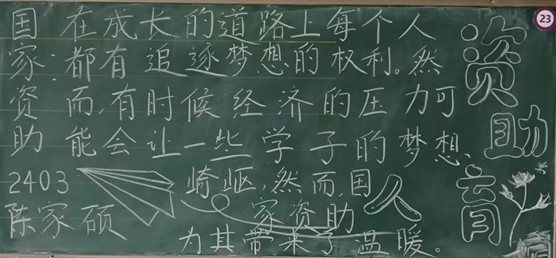 国家资助
2403
陈家硕
在成长的道路上每个人
都有追逐梦想的权利。然
而,有时候经济的压力可
能会让一些学子的梦想
崎岖,然而,国
家资助
为其带来了温暖。
资助育人
23